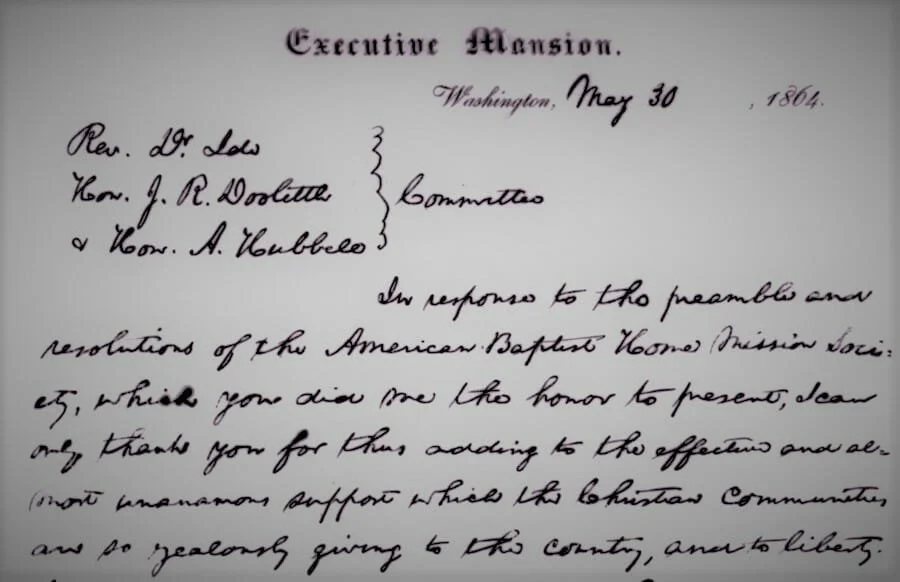 Executive Mansion.
Washington, May 30, 1864.
Rev. Dr. Ide
Hon. J. R. Doolittle } Committee
& Hon. A. Hubbell
In response to the preamble and
resolutions of the American Baptist Home Mission Soci=
ety, which you did me the honor to present, I can
only thank you for thus adding to the effective and al=
most unanamous support which the Christian communities
are so zealously giving to the country, and to liberty.